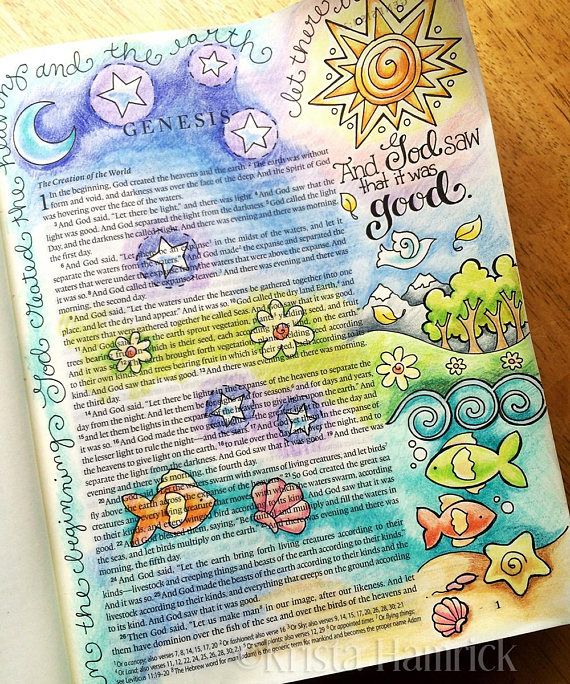 In the beginning God created the heavens and the earth
let there
And God saw
that it was
good.
GENESIS
The Creation of the World
1 In the beginning, God created the heavens and the earth. 2 The earth was without
form and void, and darkness was over the face of the deep. And the Spirit of God
was hovering over the face of the waters.
3 And God said, “Let there be light,” and there was light. 4 And God saw that the
light was good. And God separated the light from the darkness. 5 God called the light
Day, and the darkness he called Night. there was evening and there was morning,
the first day.
6 And God said, “Let in the midst of the waters, and let it
separate the waters from the waters.” 7 And God made the expanse and separated the
waters that were under the expanse from the waters that were above the expanse. And
it was so. 8 And God called the expanse And there was evening and there was
morning, the second day.
9 And God said, “Let the waters under the heavens be gathered together into one
place, and let the dry land appear.” And it was so. 10 God called the dry land Earth,
and the waters that were gathered together he called Seas. And God saw that it was good.
11 And God said, the earth sprout vegetation, plants
trees bearing fruit which is their seed, each on the earth.
to their own kinds, and trees bearing fruit in which is
kind. And God saw that it was good. 13 And there was evening and there was morning,
the third day.
14 And God said, “Let there be lights in the expanse of the heavens to separate the
day from the night. And let them be for seasons, and for days and years,
15 and let them be lights in the expanse to give light upon the earth.” And
it was so. 16 And God made the two the greater light to rule the day and
the lesser light to rule the night—and the
the heavens to give light on the earth, 18 to rule over the
separate the light from the darkness. And God saw that it was good. 19 And there was
evening and there was morning, the fourth day.
20 And God said, the waters swarm with swarms of living creatures, and let birds
fly above the earth across the expanse of the 21 So God created the great
creatures every living creature that moves, with which the waters swarm, according
to their kinds, and every according to its kind. And God saw that it was
good. 22 And God blessed them, saying, “Be fruitful and multiply and fill the waters in
the seas, and let birds multiply on the earth.” 23 And there was evening and there was
24 And God said, “Let the earth bring forth living creatures according to their
kinds—livestock and creeping things and beasts of the earth according to their kinds.”
And it was so. 25 And God made the beasts of the earth according to their kinds and the
livestock according to their kinds, and everything that creeps on the ground according
to its kind. And God saw that it was good.
26 Then God said, “Let us make man in our image, after our likeness. And let
them have dominion over the fish of the sea and over the birds of the heavens and
1 Or a canopy; also verses 7, 8, 14, 15, 17, 20 2 Or fashioned; also verse 16 3 Or Sky; also verses 9, 14, 15, 17, 20, 26, 28, 30; 2:1
4 Or Land; also verses 11, 12, 22, 24, 25, 26, 28, 30; 2:1 5 Or small plants; also verses 12, 29 6 Or appointed times 7 Or flying things;
see Leviticus 11:19–20 8 The Hebrew word for man (adam) is the generic term for mankind and becomes the proper name Adam
1
©Krista Hamrick